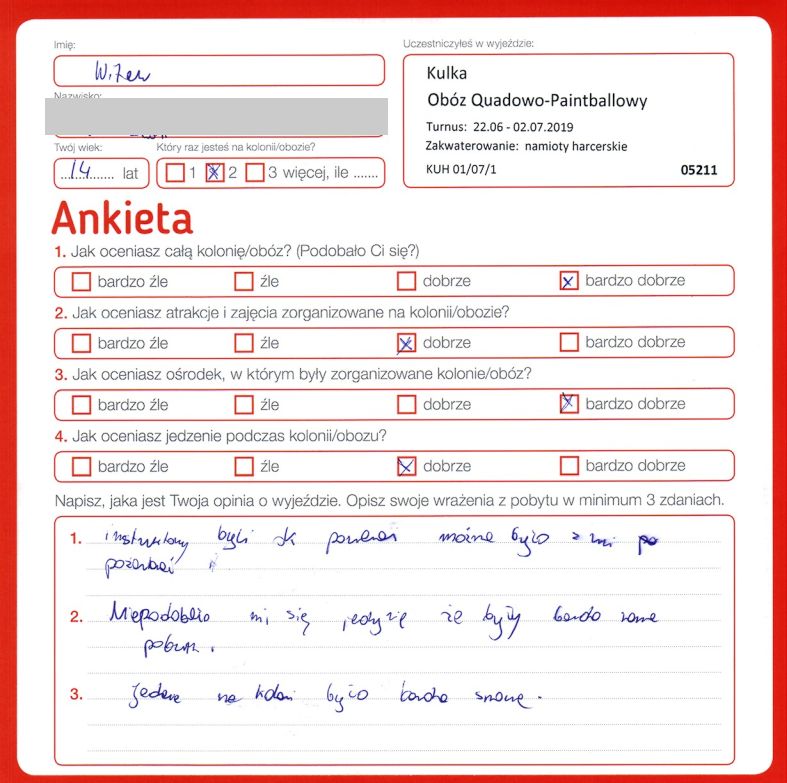 Imię:
Uczestniczyłeś w wyjeździe:
Kulka
Obóz Quadowo-Paintballowy
Nazwisko:
Turnus: 22.06 - 02.07.2019
Twój wiek: Który raz jesteś na kolonii/obozie?
Zakwaterowanie: namioty harcerskie
14 lat 1 2 3 więcej, ile .......
KUH 01/07/1 05211
Ankieta
1. Jak oceniasz całą kolonię/obóz? (Podobało Ci się?)
bardzo źle źle dobrze bardzo dobrze
2. Jak oceniasz atrakcje i zajęcia zorganizowane na kolonii/obozie?
bardzo źle źle dobrze bardzo dobrze
3. Jak oceniasz ośrodek, w którym były zorganizowane kolonie/obóz?
bardzo źle źle dobrze bardzo dobrze
4. Jak oceniasz jedzenie podczas kolonii/obozu?
bardzo źle źle dobrze bardzo dobrze
Napisz, jaka jest Twoja opinia o wyjeździe. Opisz swoje wrażenia z pobytu w minimum 3 zdaniach.
1. byli ok można było z
2. Niepodobało mi się że były
3. na było